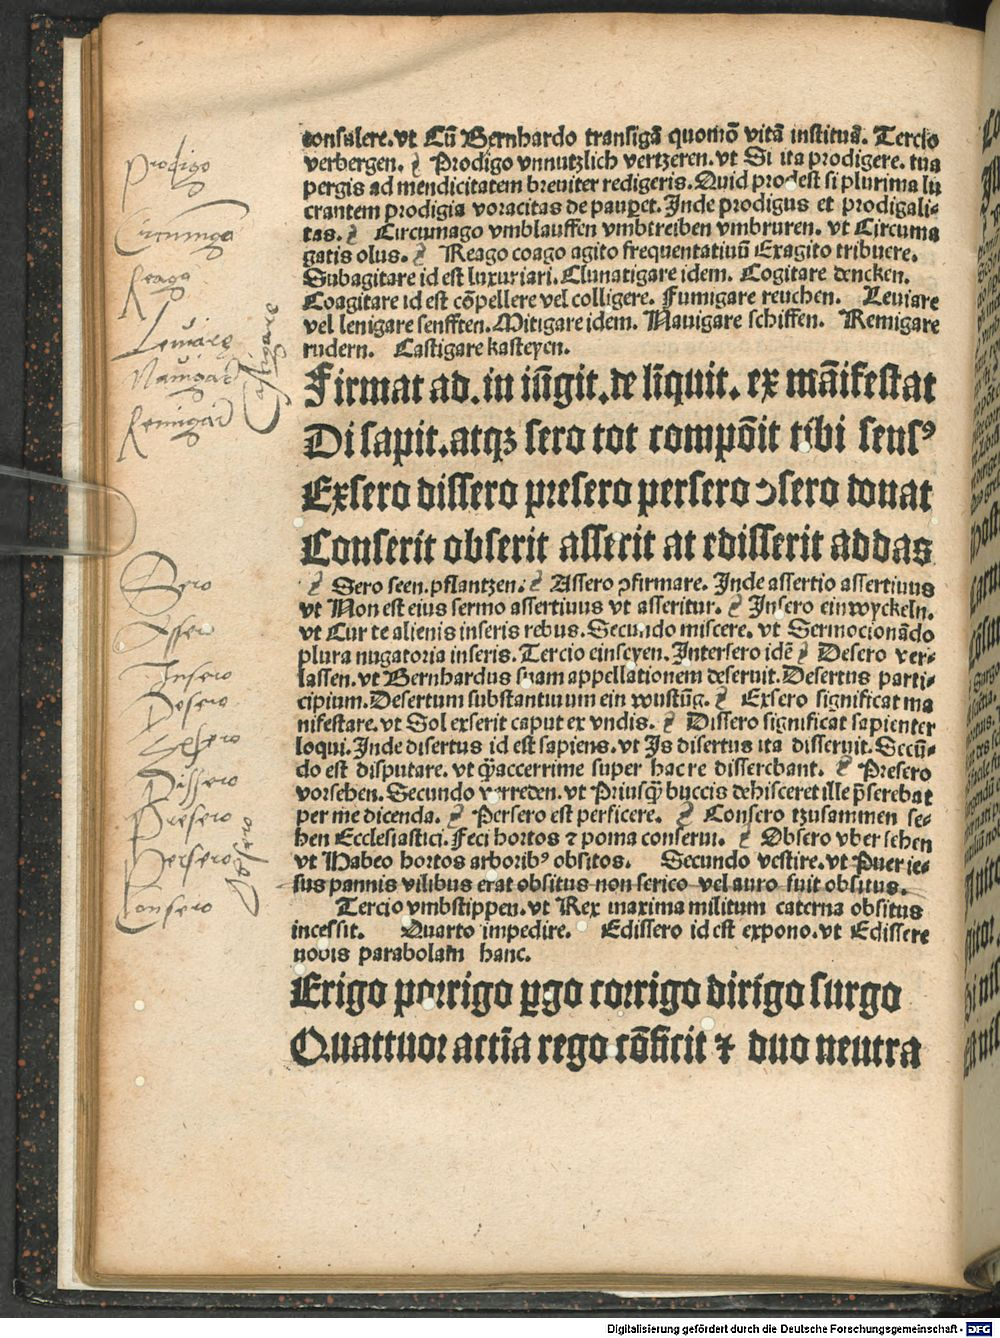 consulere. vt Cū Bernhardo transigā quomō vitā instituā. Tercio
verbergen. Prodigo vnnutzlich vertzeren. vt Si ita prodigere. tua
pergis ad mendicitatem breuiter redigeris. Quid prodest si plurima lu
crantem prodigia voracitas depauꝑet. Inde prodigus et prodigali-
tas. Circumago vmblauffen vmbtreiben vmbruren. vt Circuma
gatis olus. Reago coago agito frequentatiuū Exagito tribuere.
Subagitare id est luxuriari. Clunatigare idem. Cogitare dencken.
Coagitare id est cōpellere vel colligere. Fumigare reuchen. Leuiare
vel lenigare senfften. Mitigare idem. Nauigare schiffen. Remigare
rudern. Castigare kasteyen.
Firmat ad. in iūgit. de līquit. ex māifestat
Di sapit. atqꝫ sero tot compōit tibi sensꝰ
Exsero dissero presero persero ↄsero donat
Conserit obserit asserit at edisserit addas
Sero seen. pflantzen. Assero ↄfirmare. Inde assertio assertiuus
vt Non est eius sermo assertiuus vt asseritur. Insero einwyckeln.
vt Cur te alienis inseris rebus. Secundo miscere. vt Sermocionādo
plura nugatoria inseris. Tercio einseyen. Intersero idē Desero ver-
lassen. vt Bernhardus suam appellationem deseruit. Desertus parti-
cipium. Desertum substantiuum ein wustūg. Exsero significat ma
nifestare. vt Sol exserit caput ex vndis. Dissero significat sapienter
loqui. Inde disertus id est sapiens. vt Is disertus ita disseruit. Secū-
do est disputare. vt q̄ꝫaccerrime super hac re disserebant. Presero
vorsehen. Secundo verreden. vt Priusq̄ꝫ buccis dehisceret ille p̄serebat
per me dicenda. Persero est perficere. Consero tzusammen se-
hen Ecclesiastici. Feci hortos ⁊ poma conserui. Obsero vber sehen
vt Habeo hortos arboribꝰ obsitos. Secundo vestire. vt Puer ie-
sus pannis vilibus erat obsitus non serico vel auro fuit obsitus.
Tercio vmbstippen. vt Rex maxima militum caterna obsitus
incessit. Quarto impedire. Edissero id est expono. vt Edissere
nobis parabolam hanc.
Erigo porrigo ꝑgo corrigo dirigo surgo
Quattuor actīa rego cōficit ⁊ duo neutra
Prodigo
Circumago
Reago
Leuiare
Nauigar
Remigar
Castigare
Sero
Assero
Insero
Desero
Exsero
Dissero
Presero
Persero
Obsero
Consero
Digitalisierung gefördert durch die Deutsche Forschungsgemeinschaft - DFG